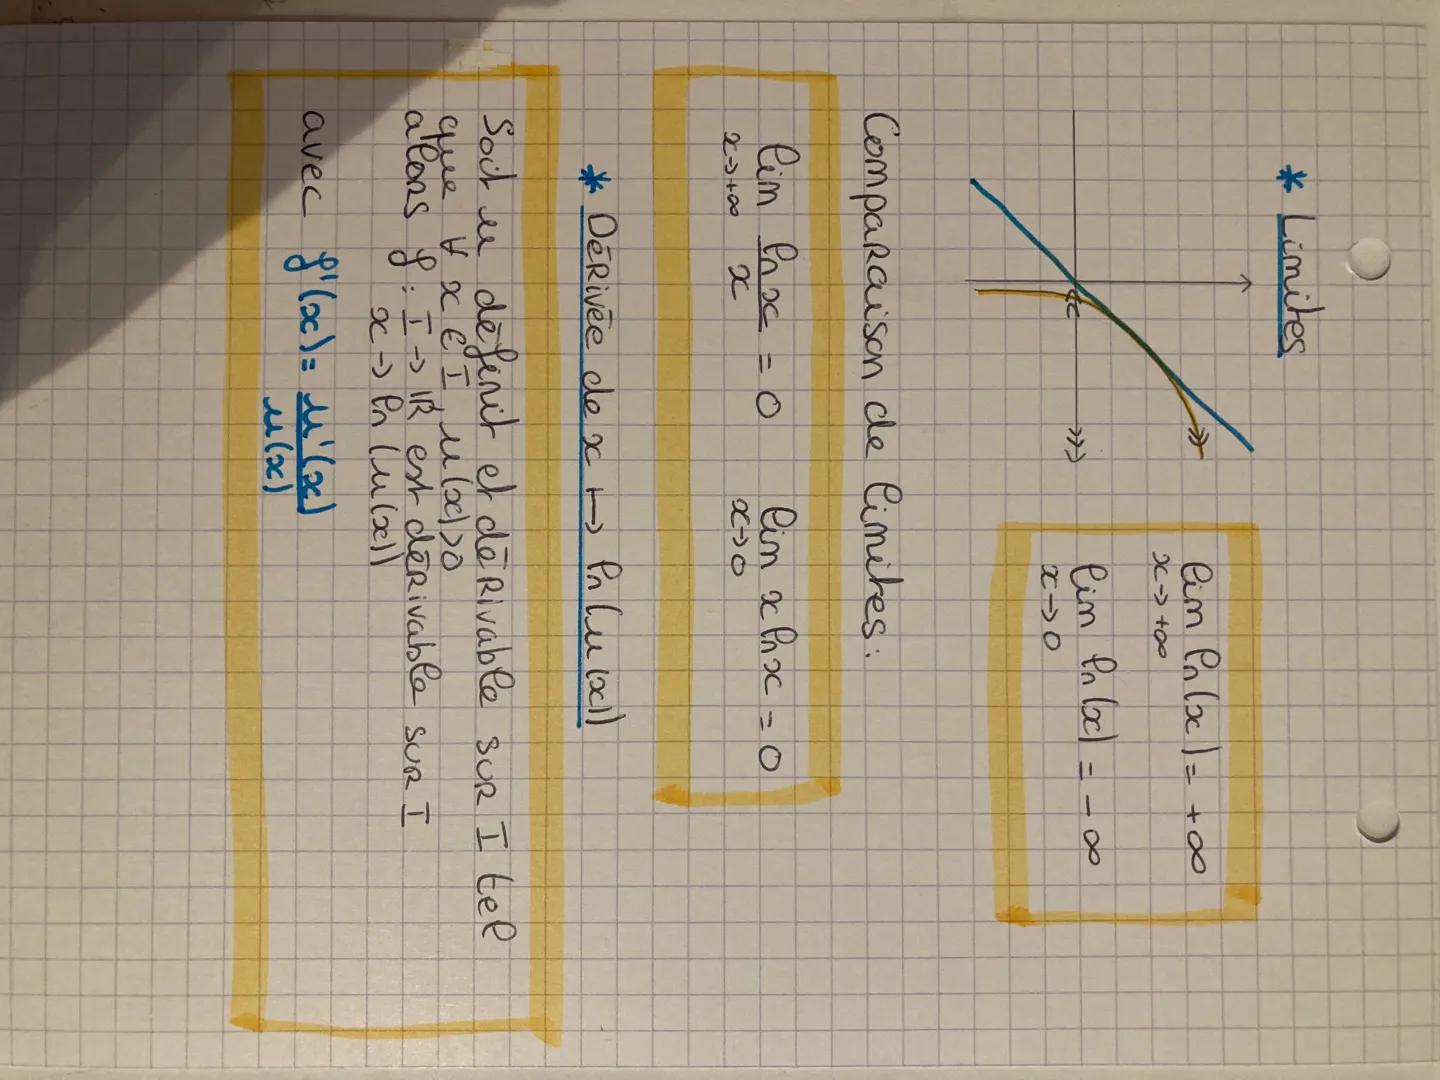 * Limites
lim ln(x) = +∞
x→+∞
lim ln(x) = -∞
x→0
Comparaison de limites :
lim ln x / x = 0 lim x ln x = 0
x→+∞ x→0
* Dérivée de x ↦ ln(u(x))
Soit u définit et dérivable sur I tel
que ∀ x ∈ I u(x)>0
alors f : I → ℝ est dérivable sur I
x → ln(u(x))
avec f'(x) = u'(x) / u(x)